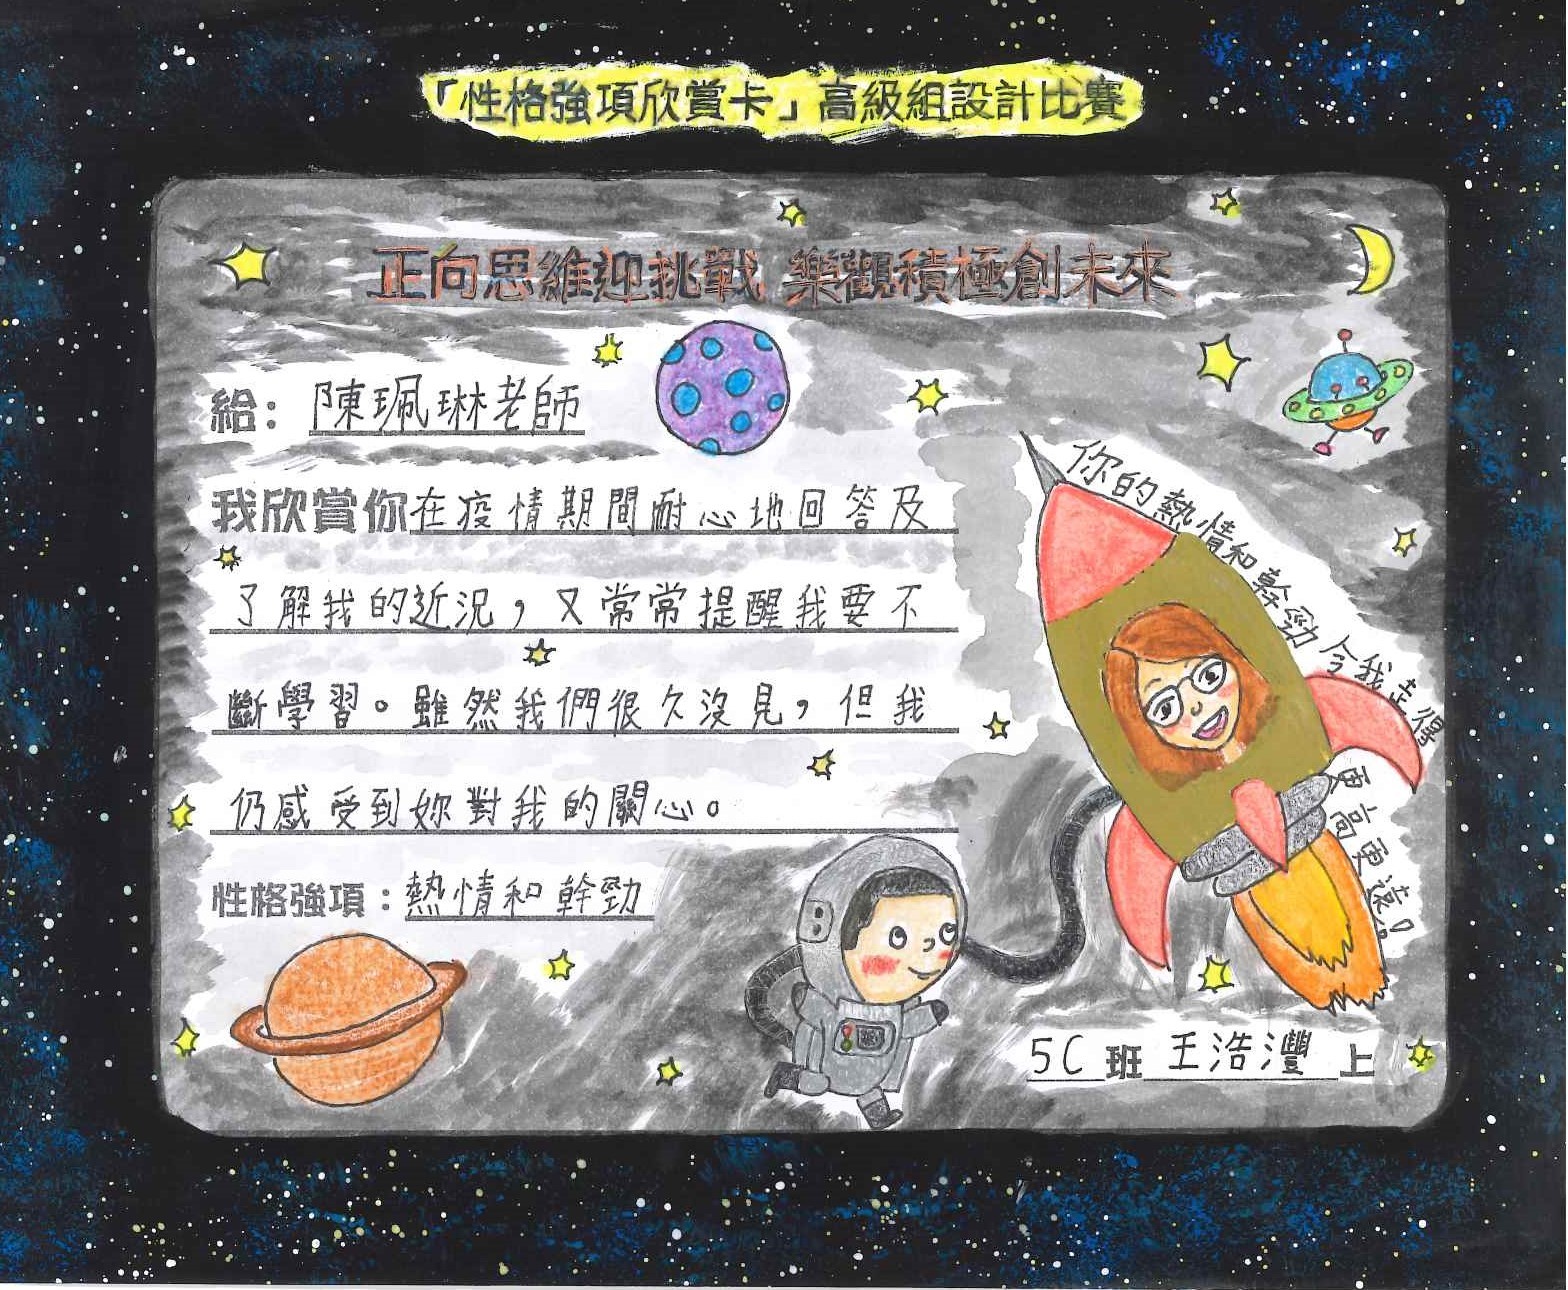 「性格強項欣賞卡」高級組設計比賽
正向思維迎挑戰 樂觀積極創未來
給：陳珮琳老師
我欣賞你在疫情期間耐心地回答及
了解我的近況，又常常提醒我要不
斷學習。雖然我們很久沒見，但我
仍感受到妳對我的關心。
性格強項：熱情和幹勁
你的熱情和幹勁令我走得更高更遠！
5C班 王浩灃 上